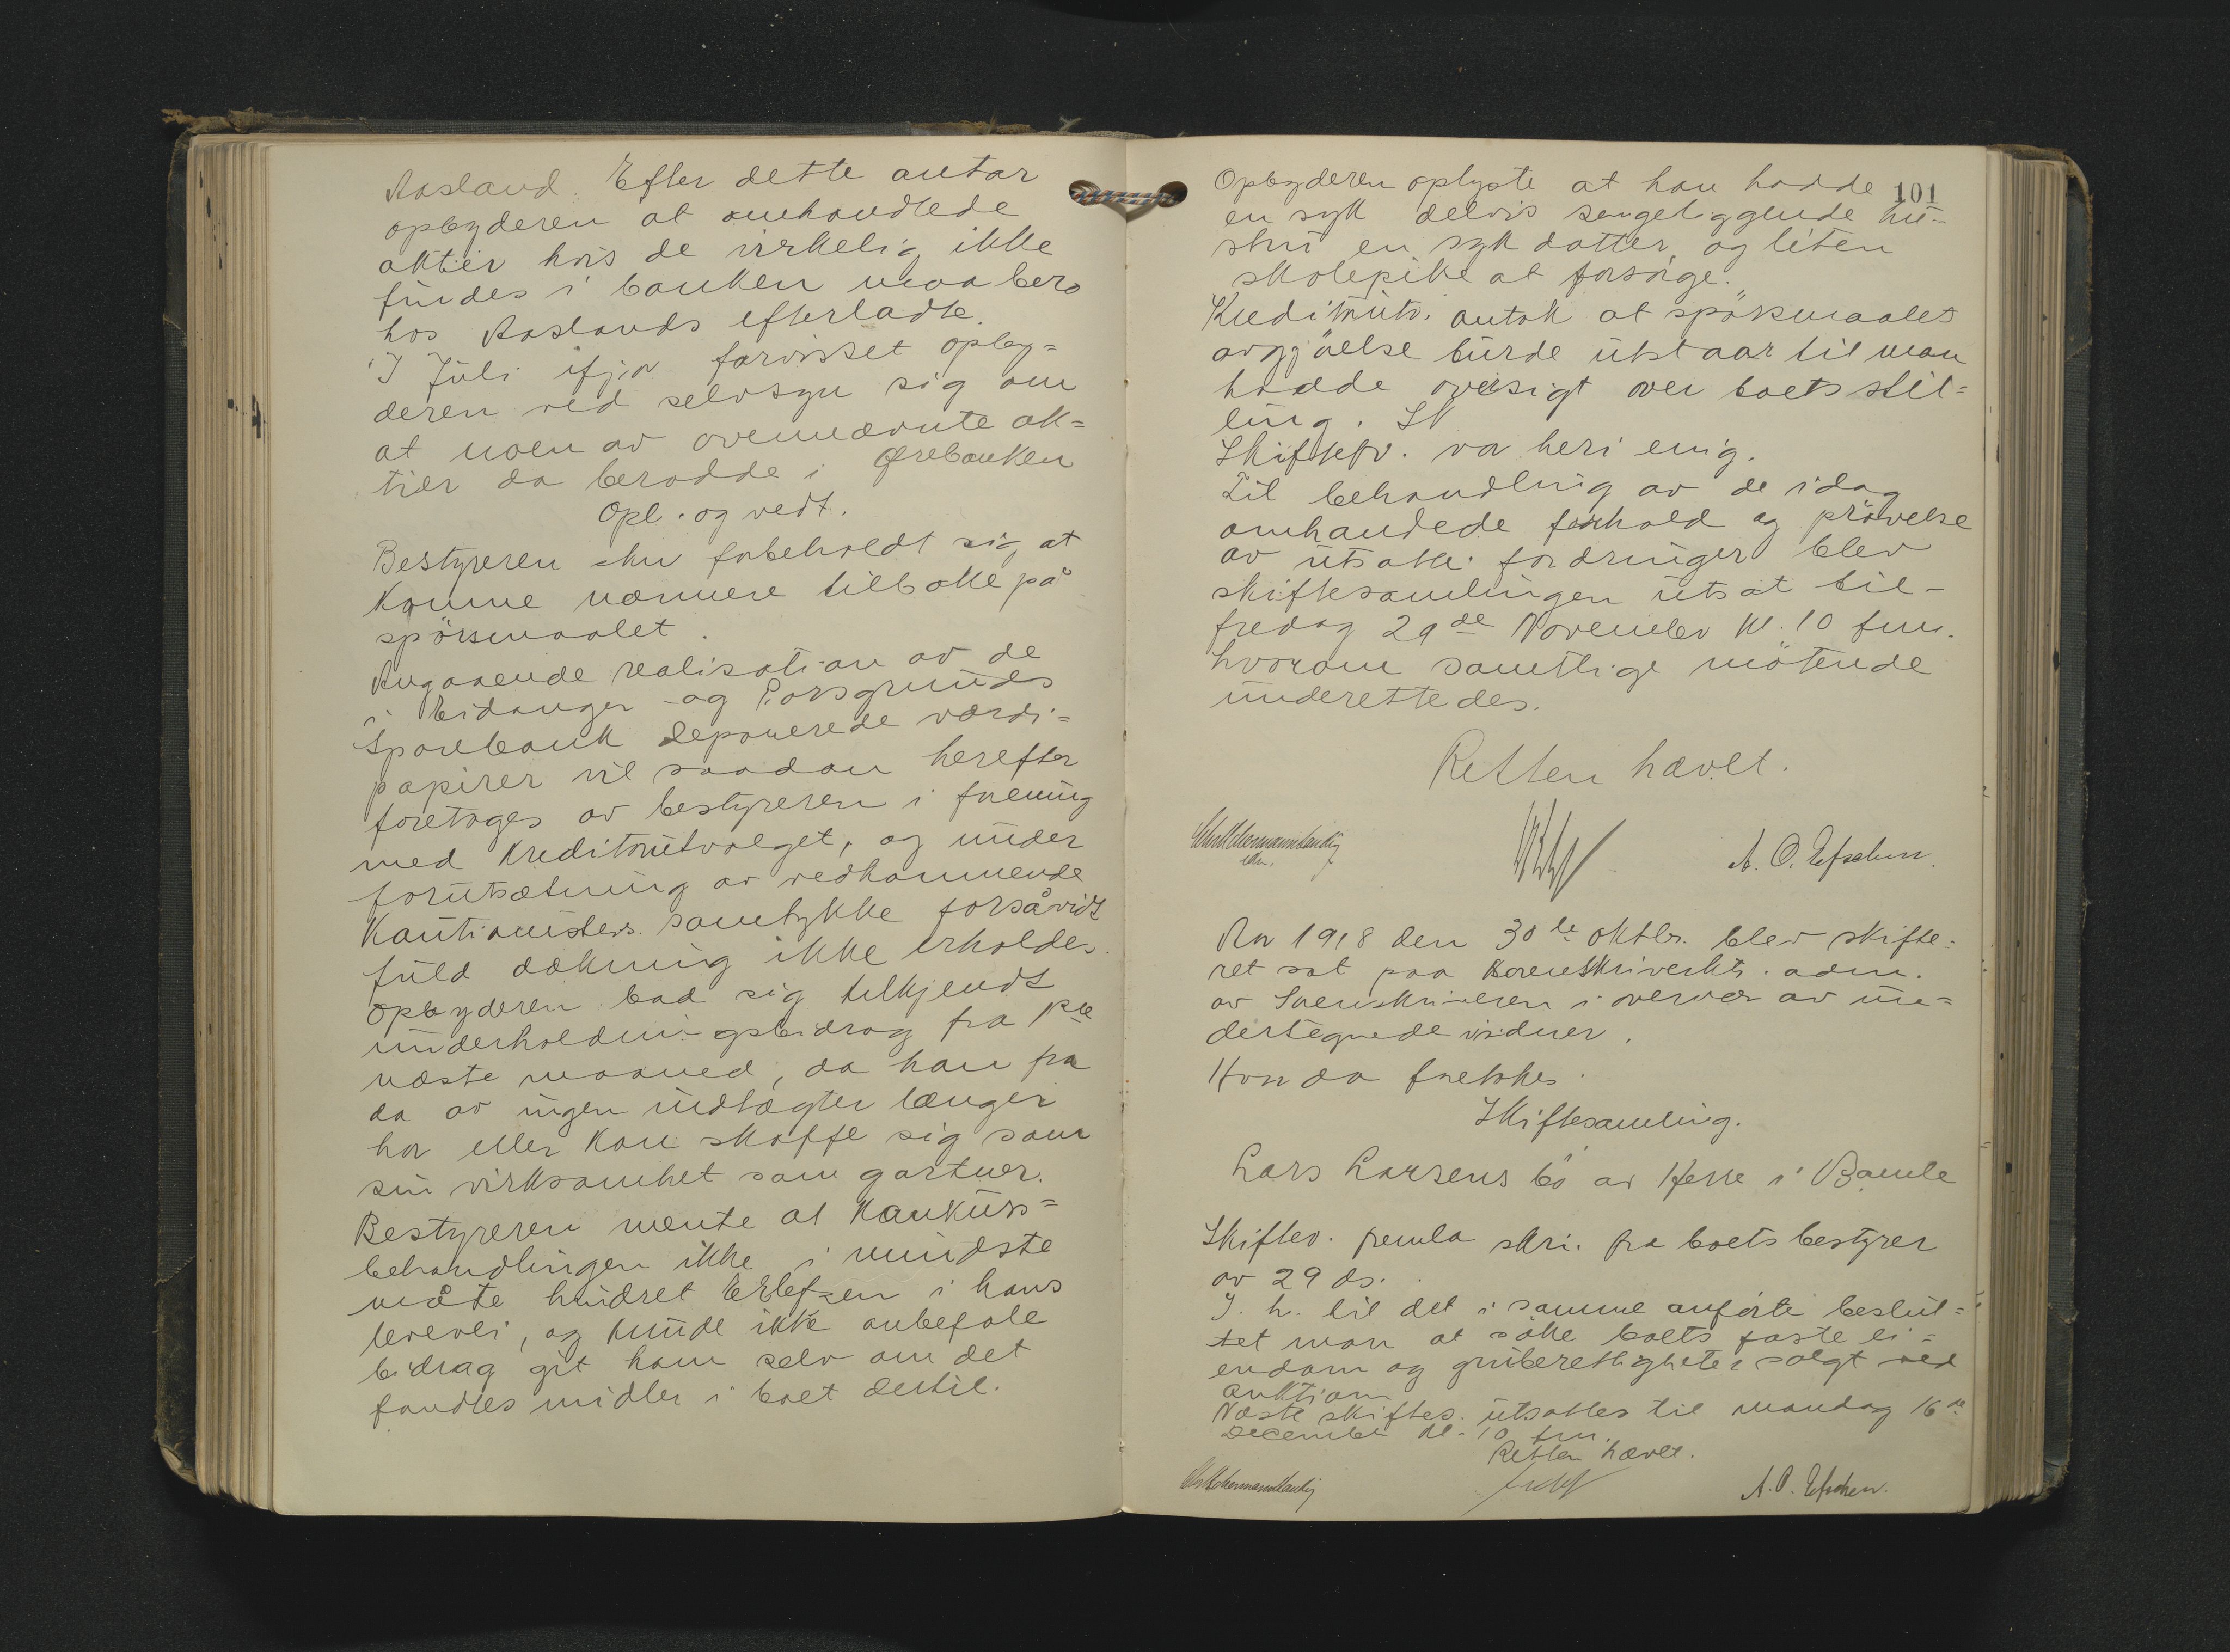 Aasland. Efter dette antar
opbyderen at omhandlede
aktier hvis de virkelig ikke
findes i banken maa bero
hos Aaslands efterladte.
I Juli ifjor forvisset opby=
deren ved selvsyn sig om
at noen av ovennævnte ak=
tier da berodde i Ørebanken
Opl. og vedt.
Bestyreren forbeholdt sig at
komme nærmere tilbake på
spörsmaalet.
Angaaende realisation av de
i Eidanger og Porsgrunds
Sparebank deponerede værdi=
papirer vil saadan herefter
foretages av bestyreren i forening
med kreditorutvalget, og under
forutsætning av vedkommende
kautionisters samtykke forsåvidt
fuld dækning ikke erholdes.
Opbyderen bad sig tilkjendt
underholdningsbidrag fra 1ste
næste maaned, da han fra
da av ingen indtægter længer
har eller kan skaffe sig som
sin virksomhet som gartner.
Bestyreren mente at konkurs=
behandlingen ikke i mindste
måte hindret Ellefsen i hans
levevei, og kunde ikke anbefale
bidrag git ham selv om det
fandtes midler i boet dertil.
101
Opbyderen oplyste at han hadde
en syk delvis sengeliggende hu=
stru en syk datter og liten
skolepike at forsörge.
Kreditorutv. antok at spörsmaalets
avgjöelse burde utstaar til man
hadde oversigt over boets stil=
ling. Sk
Skiftefv. var heri enig.
Til behandling av de idag
omhandlede forhold og prövelse
av utsatte fordringer blev
skiftesamlingen utsat til
fredag 29de November kl. 10 fm.
hvorom samtlige mötende
underettedes.
Retten hævet.
A. O. Ellefsen.
Aar 1918 den 30te oktbr. blev skifte=
ret sat paa sorenskriverkt. adm.
av Sorenskriveren i overvær av un=
dertegnede vidner.
Hvor da foretokes.
Skiftesamling.
Lars Larsens bö av Herre i Bamle
Skiftev. fremla skri. fra boets bestyrer
av 29 ds.
I. h. til det i samme anförte beslut=
tet man at söke boets faste ei=
endom og gruberettigheter solgt ved
auktion
Næste skiftes. utsattes til mandag 16de
December kl. 10 fm.
Retten hævet.
A. O. Ellefsen.